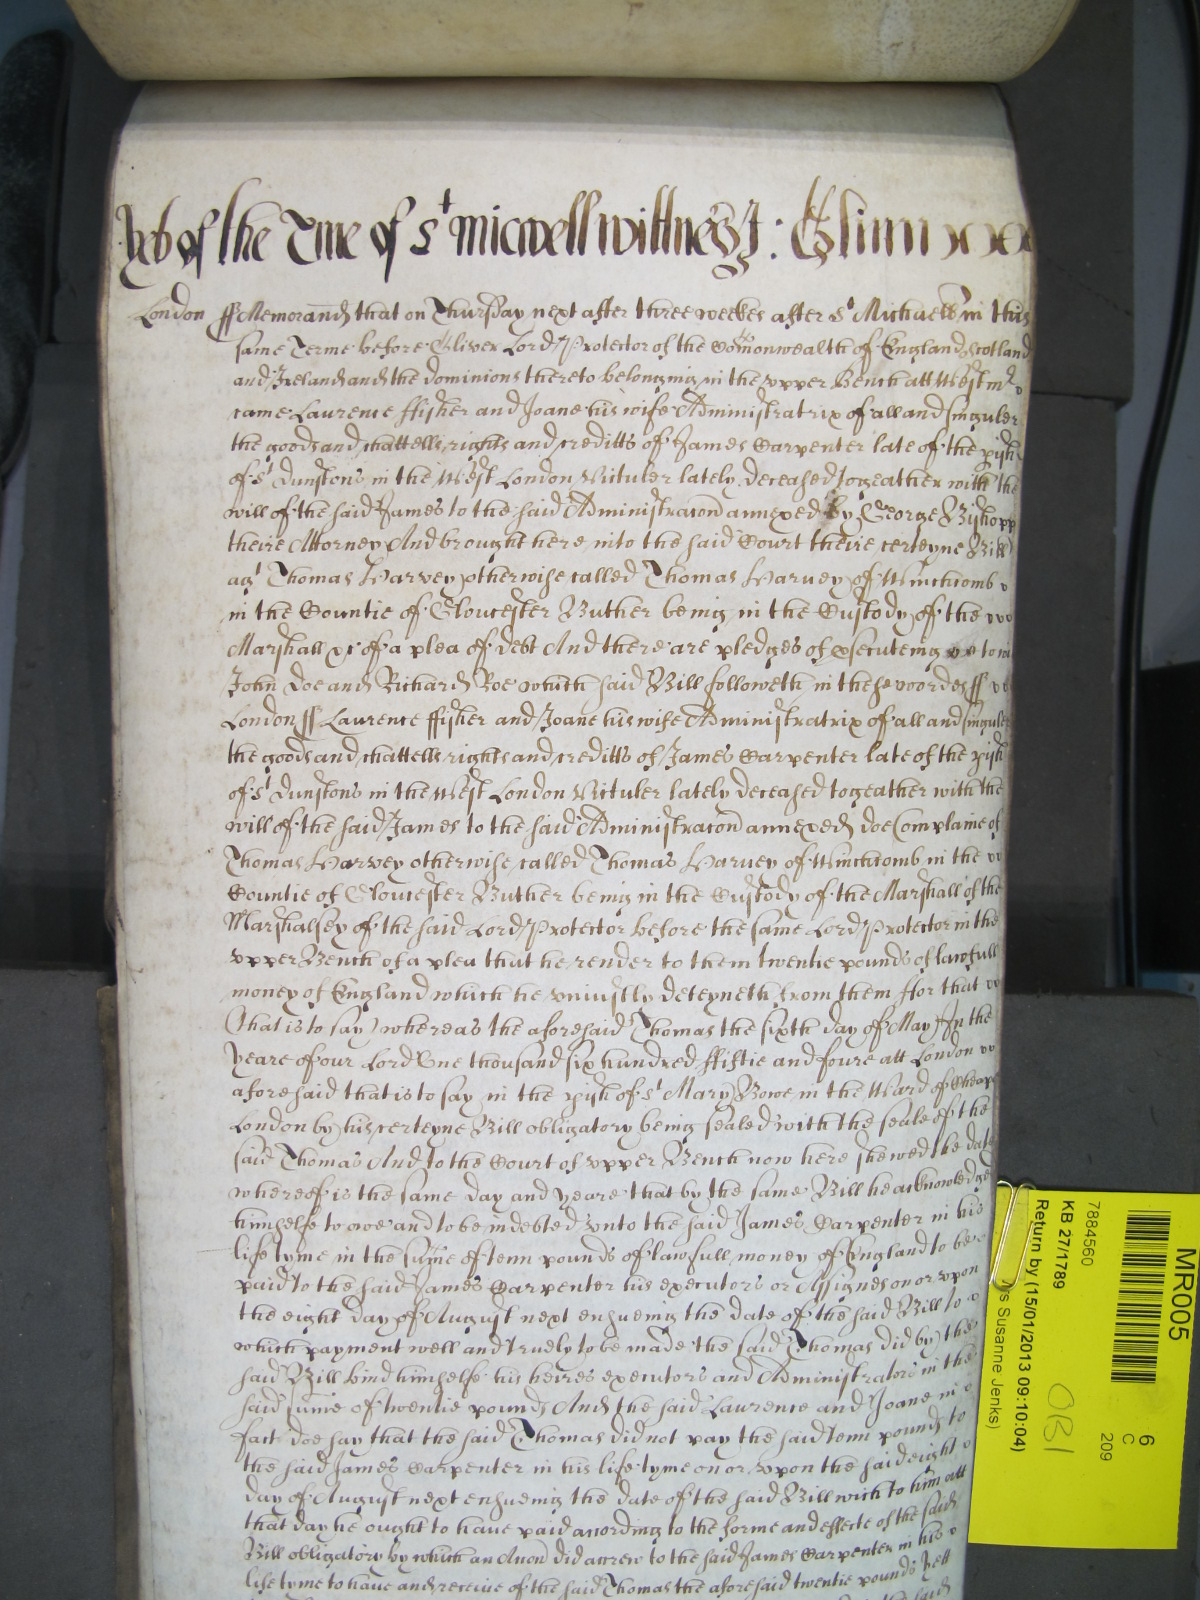 yet of the Tme of St Micaell wittnes J: Glinn
London ss Memorand that on Thursday next after three weekes after St Michaell in this
same Terme before Oliver Lord Protector of the Comonwealth of England Scotland
and Ireland and the dominions thereto belonging in the upper Bench att Westmr
came Laurence ffisher and Joane his wife Administratrix of all and singuler
the goods and chattells rights and creditts of James Carpenter late of the pish
of St Dunstons in the West London Vituler lately deceased togeather with the
will of the said James to the said Administracon annexed by George Bishopp
theire Attorney And brought here into the said Court theire certeyne Bill
agt Thomas Harvey otherwise called Thomas Harvey of Winchcomb
in the Countie of Gloucester Butcher being in the Custody of the
Marshall &c of a plea of debt And there are pledges of prosecuteing to wi
John Doe and Richard Roe which said Bill followeth in these wordes ss
London ss Laurence ffisher and Joane his wife Administratrix of all and singuler
the goods and chattells rights and creditts of James Carpenter late of the pish
of St Dunstons in the West London Vituler lately deceased togeather with the
will of the said James to the said Administracon annexed doe Complaine of
Thomas Harvey otherwise called Thomas Harvey of Winchcomb in the
Countie of Gloucester Butcher being in the Custody of the Marshall of the
Marshalsey of the said Lord Protector before the same Lord Protector in the
upper Bench of a plea that he render to them twentie pounds of lawfull
money of England which he uniustly deteyneth from them ffor that
(that is to say) whereas the aforesaid Thomas the sixth day of May In the
yeare of our Lord One thousand six hundred ffiftie and foure att London
aforesaid that is to say in the pish of St Mary Bowe in the Ward of Cheape
London by his certeyne Bill obligatory being sealed with the seale of the
said Thomas And to the Court of upper Bench now here shewed the date
whereof is the same day and yeare that by the same Bill he acknowledge
himselfe to owe and to be indebted unto the said James Carpenter in his
life tyme in the sume of tenn pounds of lawfull money of England to be
paid to the said James Carpenter his executors or Assignes on or upon
the eight day of August next ensueing the date of the said Bill to
which payment well and truely to be made the said Thomas did by the
said Bill bind himselfe his heires executors and Administrators in the
said sume of twentie pounds And the said Laurence and Joane in
fact doe say that the said Thomas did not pay the said tenn pounds to
the said James Carpenter in his life tyme on or upon the said eight
day of August next ensueing the date of the said Bill wich to him att
that day he ought to have paid according to the forme and effecte of the said
Bill obligatory by which an Accon did accrew to the said James Carpenter in his
life tyme to have and receive of the said Thomas the aforesaid twentie pounds yett
MR005
6
C
209
7884560
KB 27/1789
Return by (15/01/2013 09:10:04)
s Susanne Jenks)
OB1